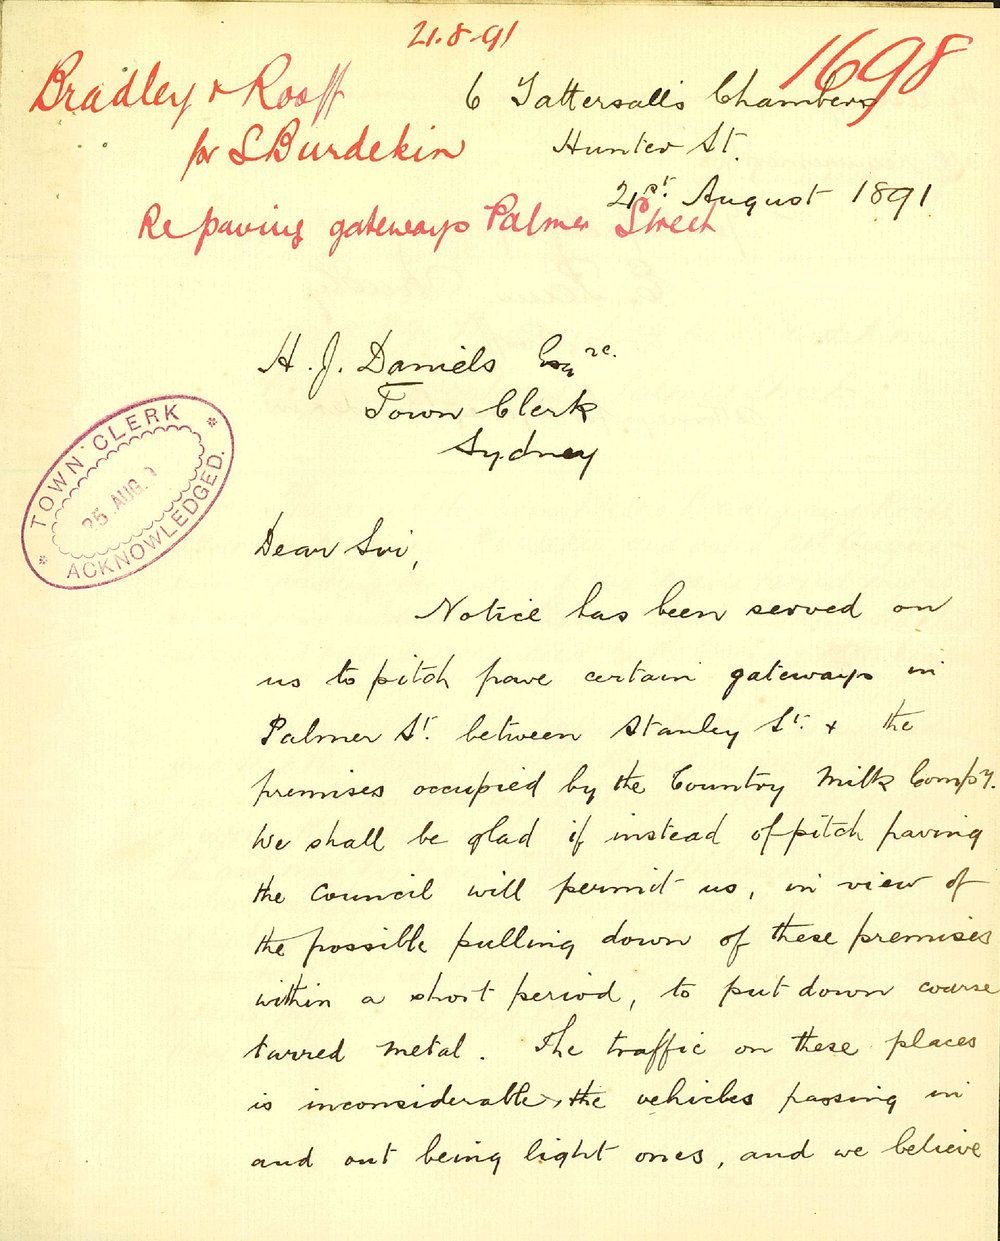 21.8.91
1698
Bradley & Rooff
for S Burdekin
Re paving gateways Palmer Street
6 Tattersall's Chambers
Hunter St.
21st. August 1891
H. J. Daniels Esqre.
Town Clerk
Sydney
TOWN CLERK
25 AUG. 9
ACKNOWLEDGED.
Dear Sir,
Notice has been served on
us to pitch pave certain gateways in
Palmer St. between Stanley St. & the
premises occupied by the Country Milk Compy.
We shall be glad if instead of pitch paving
the Council will permit us, in view of
the possible pulling down of these premises
within a short period, to put down coarse
tarred metal. The traffic on these places
is inconsiderable, the vehicles passing in
and out being light ones, and we believe